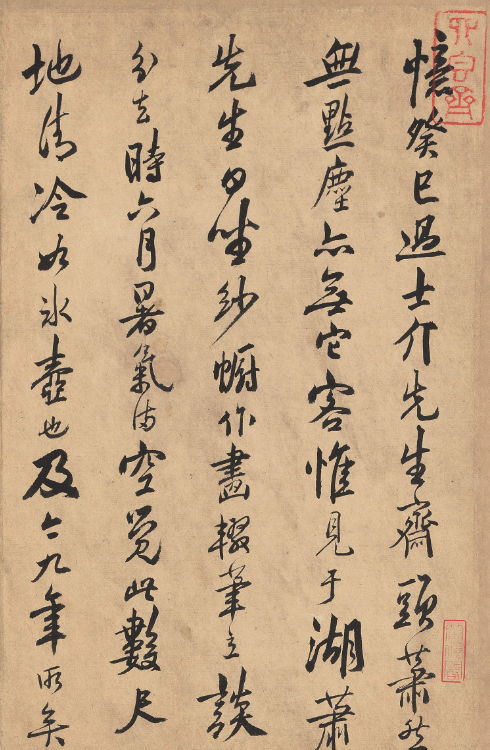 憶癸巳過士介先生齋頭蕭然
無點塵亦無它客惟見于湖蕭
先生日坐紗幮作畫輟筆立談
去時六月暑氣滿空覺此數尺
地清冷如冰壺也及今九年所矣